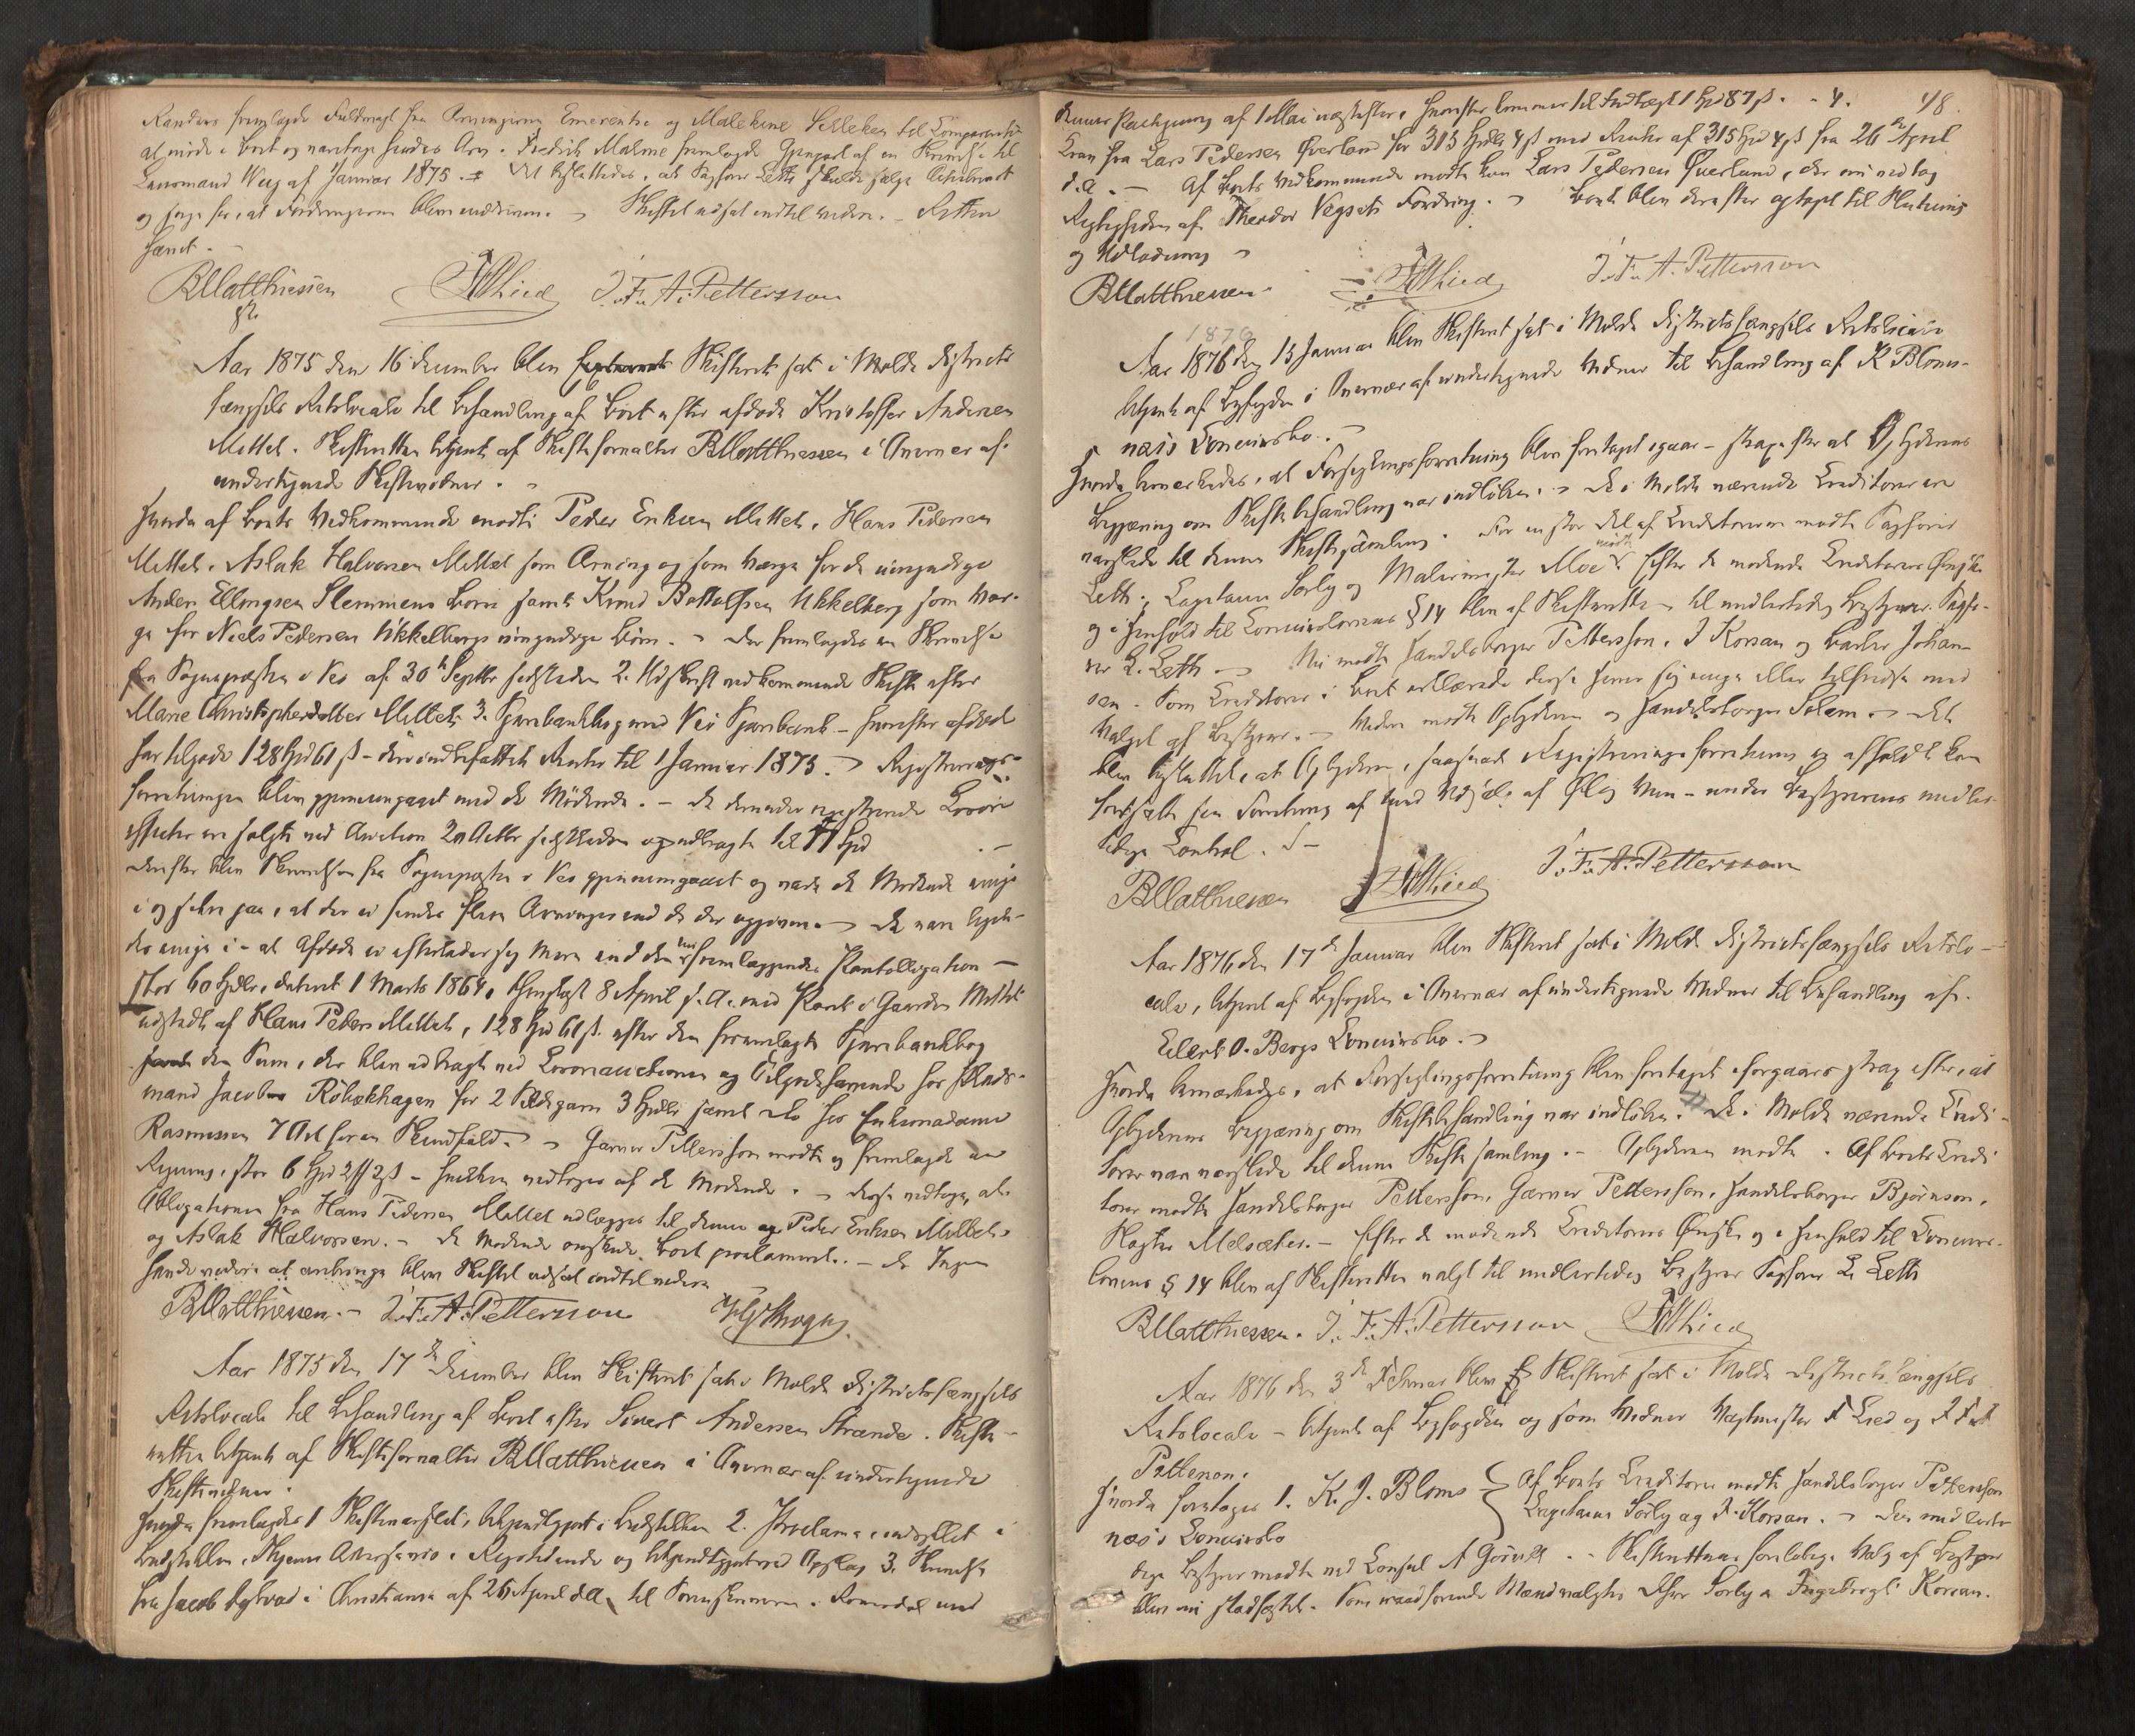 Randers fremlagde Fuldmagt fra Arvingerne Emerentse og Malekine Selleken til Comparenten
at møde i Boet og modtage hendes Arv. Fredrik Malme fremlagde Gjenpart af en Skrivelse til
Lensmand Weeg af Januar 1875. Det besluttedes, at Sagfører Leth skulde sælge
og sørge for, at Fordringerne bleve inddrevne. Skiftet udsat indtil videre. - Retten
hævet. -
BMatthiessen JMLied J. F. A. Pettersson
Aar 1875 den 16 December blev Skifteret sat i Molde Districts
fængsels Retslocale til Behandling af Boet efter afdøde Kristoffer Andersen
Mittet. Skifteretten betjent af Skifteforvalter BMatthiessen i Overvær af
undertegnede Skiftevidner. -
Hvorda af Boets Vedkommende mødte Peder Eriksen Mittet, Hans Pedersen
Mittet, Aslak Halvorsen Mittet som Arving og som Værge for de umyndige
Anders Ellingsen Slemmens Børn samt Knud Bottolfsen Ukkelberg som Vær-
ge for Niels Pedersen Ukkelbergs umyndige Børn. - Der fremlagdes en Skrivelse
fra Sognepræsten i Veø af 30te Septbr sidstleden 2. Udskrift vedkommende Skifte efter
Marie Christophersdatter Mittet 3. Sparebankbog med Veø Sparebank - hvorefter afdøde
har tilgode 128 Spd 61 ß - deri indbefattet Renter til 1 Januar 1875. - Registrerings-
forretningen blev gjennemgaaet med de Mødende. - De derunder registrerede Løsøre
effecter ere solgte ved Auction 20 Octbr sidstleden og udbragte til Spd
Derefter blev Skrivelsen fra Sognepræsten i Veø gjennemgaaet og vare de Mødende enige
i og sikre paa, at der ei findes flere Arvinger end de der opgivne. - De vare ligele-
des enige i - at Afdøde ei efterlader sig mere end den her fremlæggende Pantobligation -
stor 60 Spdlr, dateret 1 Marts 1864, thinglæst 8 April s. A. med Pant i Gaarden Mittet
udstedt af Hans Peders Mittet, 128 Spd 61 ß. efter den fremlagte Sparebankbog
samt den Sum, der blev udbragt ved Løsøreauctionen og Tilgodehavende hos Plads-
mand Jacob Röbækhagen for 2 Sildegarn 3 Spdlr samt do hos Enkemadame
Rasmussen 7 Ort for en Skindfeld. - Garver Pettersson mødte og fremlagde en
Regning, stor 6 Spd - hvilken vedtoges af de Mødende. - Disse vedtoge, at
Obligationen fra Hans Pedersen Mittet udlægges til denne og Peder Eriksen Mittet
og Aslak Halvorsen. - De Mødende ønskede Boet proclameret. - Da Ingen
havde videre at anbringe blev Skiftet udsat indtil videre
BMatthiessen. - J. F. A. Pettersson
Aar 1875 den 17de December blev Skifteret sat i Molde Districtsfængsels
Retslocale til Behandling af Boet efter Sivert Andersen Strande. Skifte-
retten betjent af Skifteforvalter BMatthiessen i Overvær af undertegnede
Skiftevidner.
Hvorda fremlagdes 1 Skiftevarslet, bekjendtgjort i Budstikken 2. Proclama, indrykket i
Budstikken, Thjems Adresseavis, Rigstidende og bekjendtgjort ved Opslag 3. Skrivelse
fra Jacob Digtvad i Christiania af 26 April d. A. til Sorenskriveren i Romsdal med
48.
dennes Paategning af 1 Mai næstefter, hvorefter kommer til Indtægt 1 Spd 87 ß. - 4.
Krav fra Lars Pedersen Øverland for 315 Spdlr 4 ß med Renter af 315 Spd 4 ß fra 26de April
d. A. - Af Boets Vedkommende mødte kun Lars Pedersen Øverland, der nu vedtog
Rigtigheden af Theodor Vegsets Fordring. - Boet blev derefter optaget til Slutning
og Udlodning -
BMatthiessen JMLied J. F. A. Pettersson
1876
Aar 1876 den 15 Januar blev Skifteret sat i Molde Districtsfængsels Retslocale
betjent af Byfogden i Overvær af undertegnede Vidner til Behandling af K Bloms-
næs's Concursbo. -
Hvorda bemærkedes, at Forseglingsforretning blev foretaget igaar - strax efter at Opbydernes
Begjæring om Skiftebehandling var indløben. - De i Molde værende Creditorer ere
varslede til denne Skiftesamling. For en stor Del af Creditorerne mødte Sagfører
Leth. Capitaine Sørby og Malermester Moe mødte. Efter de mødende Creditorers Ønske
og i Henhold til Concurslovens § 14 blev af Skifteretten - til midlertidig Bestyrer Sagfø-
rer C. Leth - Nu mødte Handelsborger Pettersson, I Korsan og Bager Johan-
sen. Som Creditorer i Boet erklærede disse sig enige eller tilfredse med
Valget af Bestyrer. - Videre mødte Opbyderen og Handelsborger Solem. - Det
blev besluttet, at Opbyderen, saasnart Registreringsforretning er afholdt kan
fortsætte sin Forretning af med Udsalg af Øl og Vin - under Bestyrerens midler-
tidige Control. -
BMatthiessen JMLied J. F. A. Pettersson
Aar 1876 den 17de Januar blev Skifteret sat i Molde Districtsfængsels Retslo-
cale, betjent af Byfogden i Overvær af undertegnede Vidner til Behandling af
Eilert O. Bergs Concursbo. -
Hvorda bemærkedes, at Forseglingsforretning blev foretaget iforgaars strax efter, at
Opbyderens Begjæring om Skiftebehandling var indløben. De i Molde værende Credi-
torer vare varslede til denne Skiftesamling. - Opbyderen mødte. Af Boets Credi
torer mødte Handelsborger Pettersson, Garver Pettersson, Handelsborger Bjørnson,
Melsæther. - Efter de mødende Creditorers Ønske og i Henhold til Concurs-
lovens § 14 blev af Skifteretten valgt til midlertidig Bestyrer Sagfører C. Leth
BMatthiessen. J. F. A. Pettersson JMLied
Aar 1876 den 3de Februar blev Skifteret sat i Molde Districtsfængsels
Retslocale - betjent af Byfogden og som Vidner Vagtmester Lied og J F A
Petterson.
Hvorda foretages 1. K. J. Bloms- } Af Boets Creditorer mødte Handelsborger Pettersson
næs's Concursbo Capitaine Sørby og I. Korsan. - Den midlerti-
dige Bestyrer mødte ved Consul A Gørvell. - Skifterettens foreløbige Valg af Bestyrer
blev nu stadfæstet. Som raadførende Mænd valgtes Dhrr Sørby & Ingebrigt Korsan.